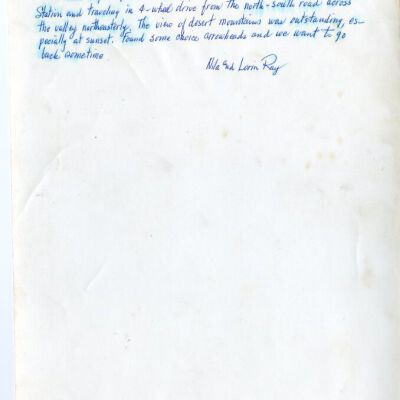 Station and traveling in 4-wheel drive from the north-south road across
the valley northeasterly. The view of desert mountains was outstanding, es-
pecially at sunset. Found some choice arrowheads and we want to go
back sometime
Nila and Lorin Ray